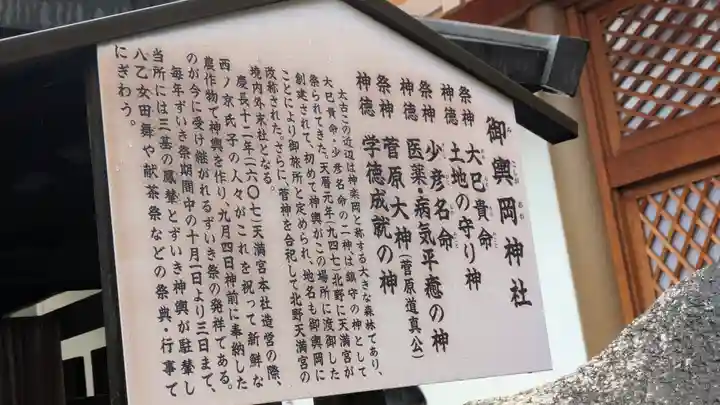 御輿岡神社
みこしおかじんじゃ
祭神 大巳貴命
神徳 土地の守り神
祭神 少彦名命
神徳 医薬・病気平癒の神
祭神 菅原大神(菅原道真公)
神徳 学徳成就の神
太古この近辺は神楽岡と称する大きな森林であり、
大巳貴命・少彦名命の二神は鎮守の神として
祭られてきた。天暦元年(九四七)北野に天満宮が
創建されて、初めて神輿がこの場所に渡御した
ことにより御旅所と定められ、地名も御輿岡に
改称された。さらに、菅神を合祀して北野天満宮の
境内外末社となる。
慶長十二年(一六〇七)天満宮本社造営の際、
西ノ京氏子の人々がこれを祝って新鮮な
農作物で神輿を作り、九月四日神前に奉納した
のが今に受け継がれるずいき祭の発祥である。
毎年ずいき祭期間中の十月一日より三日まで、
当所には三基の鳳輦とずいき神輿が駐輦し
八乙女田舞や献茶祭などの祭典・行事で
にぎわう。